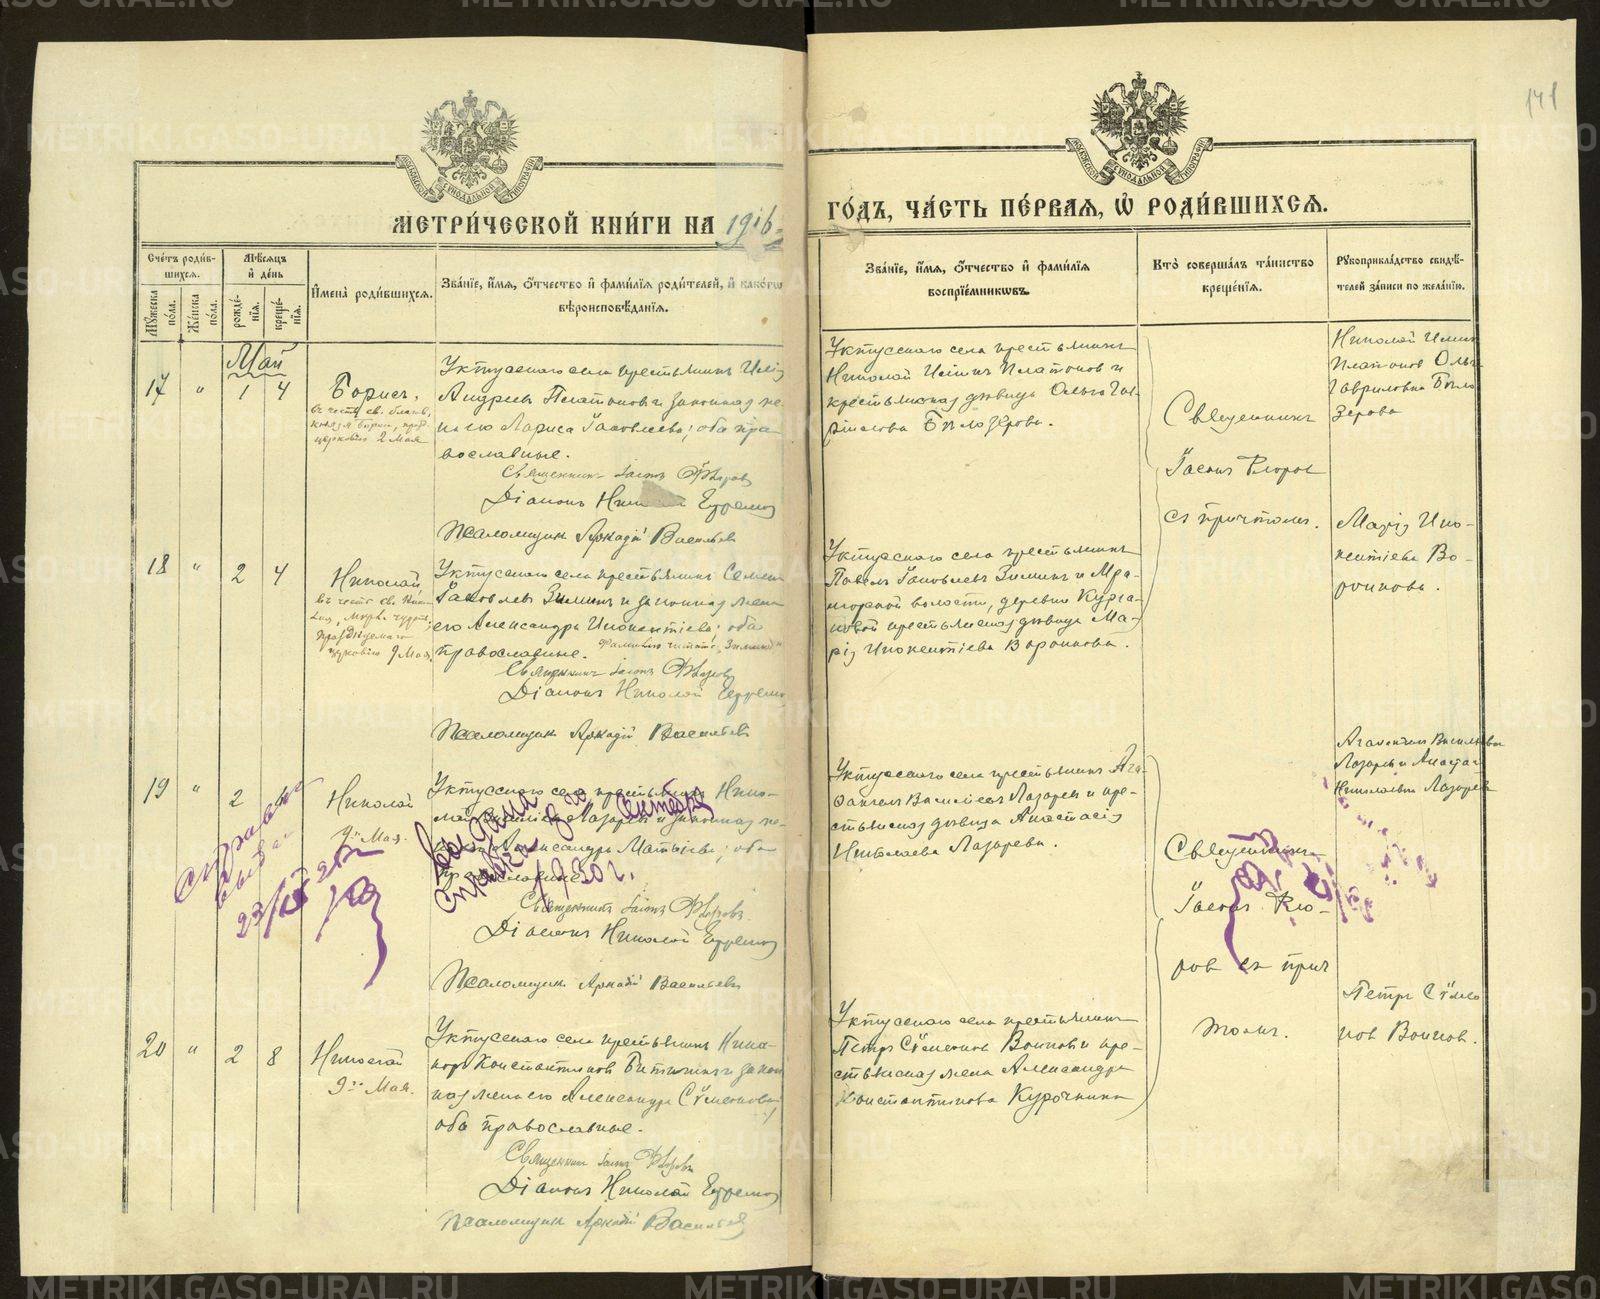 141
МЕТРИ́ЧЕСКОЙ КНИ́ГИ НА 1916
ГО́ДЪ, ЧА́СТЬ ПЕ́РВАЯ, Ѡ РОДИ́ВШИХСЯ.
Сче́тъ роди́в-
шихся.
Мꙋжеска по́ла.
Же́нска по́ла.
Мѣ́сяцъ и де́нь
рожде́-
нїя.
креще́-
нїя.
И҆мена̀ роди́вшихся.
Зва́нїе, и҆́мя, ѻ҆́тчество и҆ фами́лїя роди́телей, и҆ како́гѡ
вѣроисповѣ́данїя.
Зва́нїе, и҆́мя, ѻ҆́тчество и҆ фами́лїя
воспрїе́мникѡвъ.
Кто̀ соверша́лъ та́инство
креще́нїя.
Рꙋкоприкла́дство свидѣ́-
телей за́писи по жела́нїю.
Май
17 " 1 4
Борисъ,
въ честь св. благов.
князя Бориса, празд.
церковію 2 Мая
Уктусскаго села крестьянинъ Илія
Андреевъ Платоновъ и законная же-
на его Лариса Іаковлева; оба пра-
вославные.
Священникъ Іасонъ Флоровъ
Діаконъ Николай Ефремов
Псаломщикъ Аркадій Васильевъ
Уктусскаго села крестьянинъ
Николай Иліинъ Платоновъ и
крестьянская дѣвица Ольга Гав-
рилова Бѣлозерова.
Священникъ
Іасонъ Флоров
съ причтомъ.
Николай Илиин
Платонов Ольга
Гавриловна Бѣло
зерова
18 " 2 4
Николай
въ честь св. Нико-
лая, Мирл. чудотв.,
празднуемаго
церковію 9 Мая.
Уктусскаго села крестьянинъ Семенъ
Іаковлевъ Зиминъ и законная жена
его Александра Инокентіева; оба
православные. Фамилію читать: "Зиминъ"
Священникъ Іасонъ Флоровъ
Діаконъ Николай Ефремов
Псаломщикъ Аркадій Васильевъ
Уктусскаго села крестьянинъ
Павелъ Іаковлевъ Зиминъ и Мра-
морской волости, деревни Курга-
новой крестьянская дѣвица Ма-
рія Инокентіева Воронкова.
Марія Ино-
кентіева Во-
ронкова.
19 " 2 4
Николай
9го Мая.
Уктусскаго села крестьянинъ Нико-
лай Василіевъ Лазаревъ и законная же-
на его Александра Матвіева; оба
православные.
Священникъ Іасонъ Флоровъ
Діаконъ Николай Ефремов
Псаломщикъ Аркадій Васильевъ
Справка
выдана
23/IX 25г
Выдана
справка 30го Октября
1930 г.
Уктусскаго села крестьянинъ Ага-
фангелъ Василіевъ Лазаревъ и кре-
стьянская дѣвица Анастасія
Николаева Лазарева.
Священникъ
Іасонъ Фло-
ровъ съ прич
томъ.
Агафангел Васильевъ
Лазарев и Анастас
Николаевна Лазарев
20 " 2 8
Николай
9го Мая.
Уктусскаго села крестьянинъ Ника-
норъ Константиновъ Битюшкъ и закон
ная жена его Александра Симеонова;
оба православные.
Священникъ Іасонъ Флоровъ
Діаконъ Николай Ефремов
Псаломщикъ Аркадій Васильевъ
Уктусскаго села крестьянинъ
Петръ Симеоновъ Воиновъ и кре-
стьянская жена Александра
Константинова Курочкина
Петръ Симео
нов Воинов.
METRIKI.GASO-URAL.RU